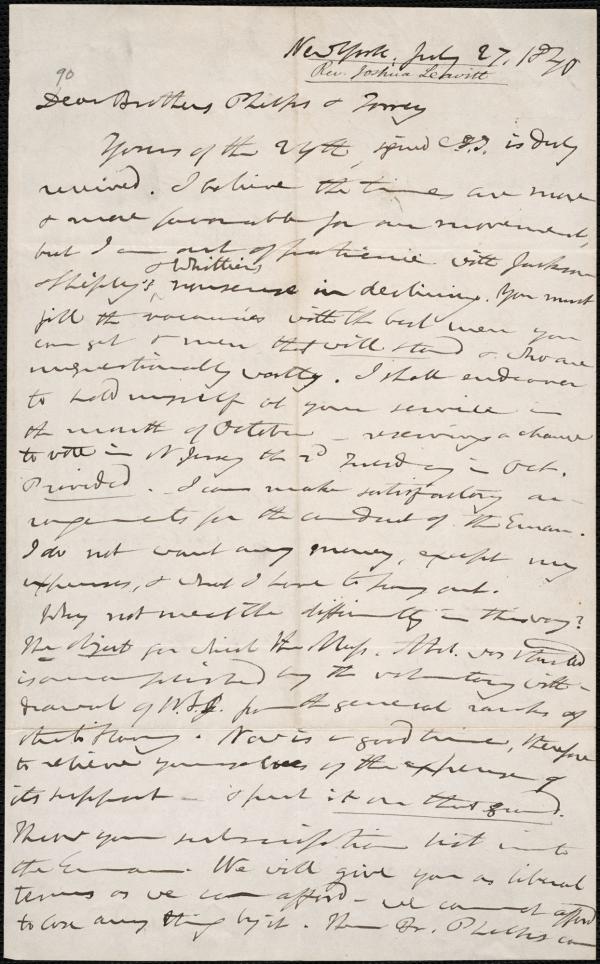 New York, July 27, 1840
Rev. Joshua Leavitt
90
Dear Brothers Phelps & Torrey
Yours of the 24th, signed C.T.T. is duly
received. I believe the times are more
& more favorable for our movement,
but I am out of patience with Jackson
& Whittier's
Shipley's nonsense in declining. You must
fill the vacancies with the best men you
can get & men that will stand & who are
unquestionably worthy. I shall endeavor
to hold myself at your service in
the month of October - reserving a chance
to vote in N Jersey the 2d Tuesday in Oct.
Provided. I can make satisfactory ar-
rangements for the conduct of the Eman.
I do not want any money, except my
expenses, & what I have to pay out.
Why not meet the difficulty in this way?
The object for which the Mass. Abol. was started
is accomplished by the voluntary with-
drawal of W.L.G. from the general ranks of
anti-slavery. Now is a good time, therefore
to relieve yourselves of the expense of
its support - & put it on that ground.
Throw your subscription list into
the Eman. We will give you as liberal
terms as we can afford - we cannot afford
to lose any thing by it. Then Br. Phelps can